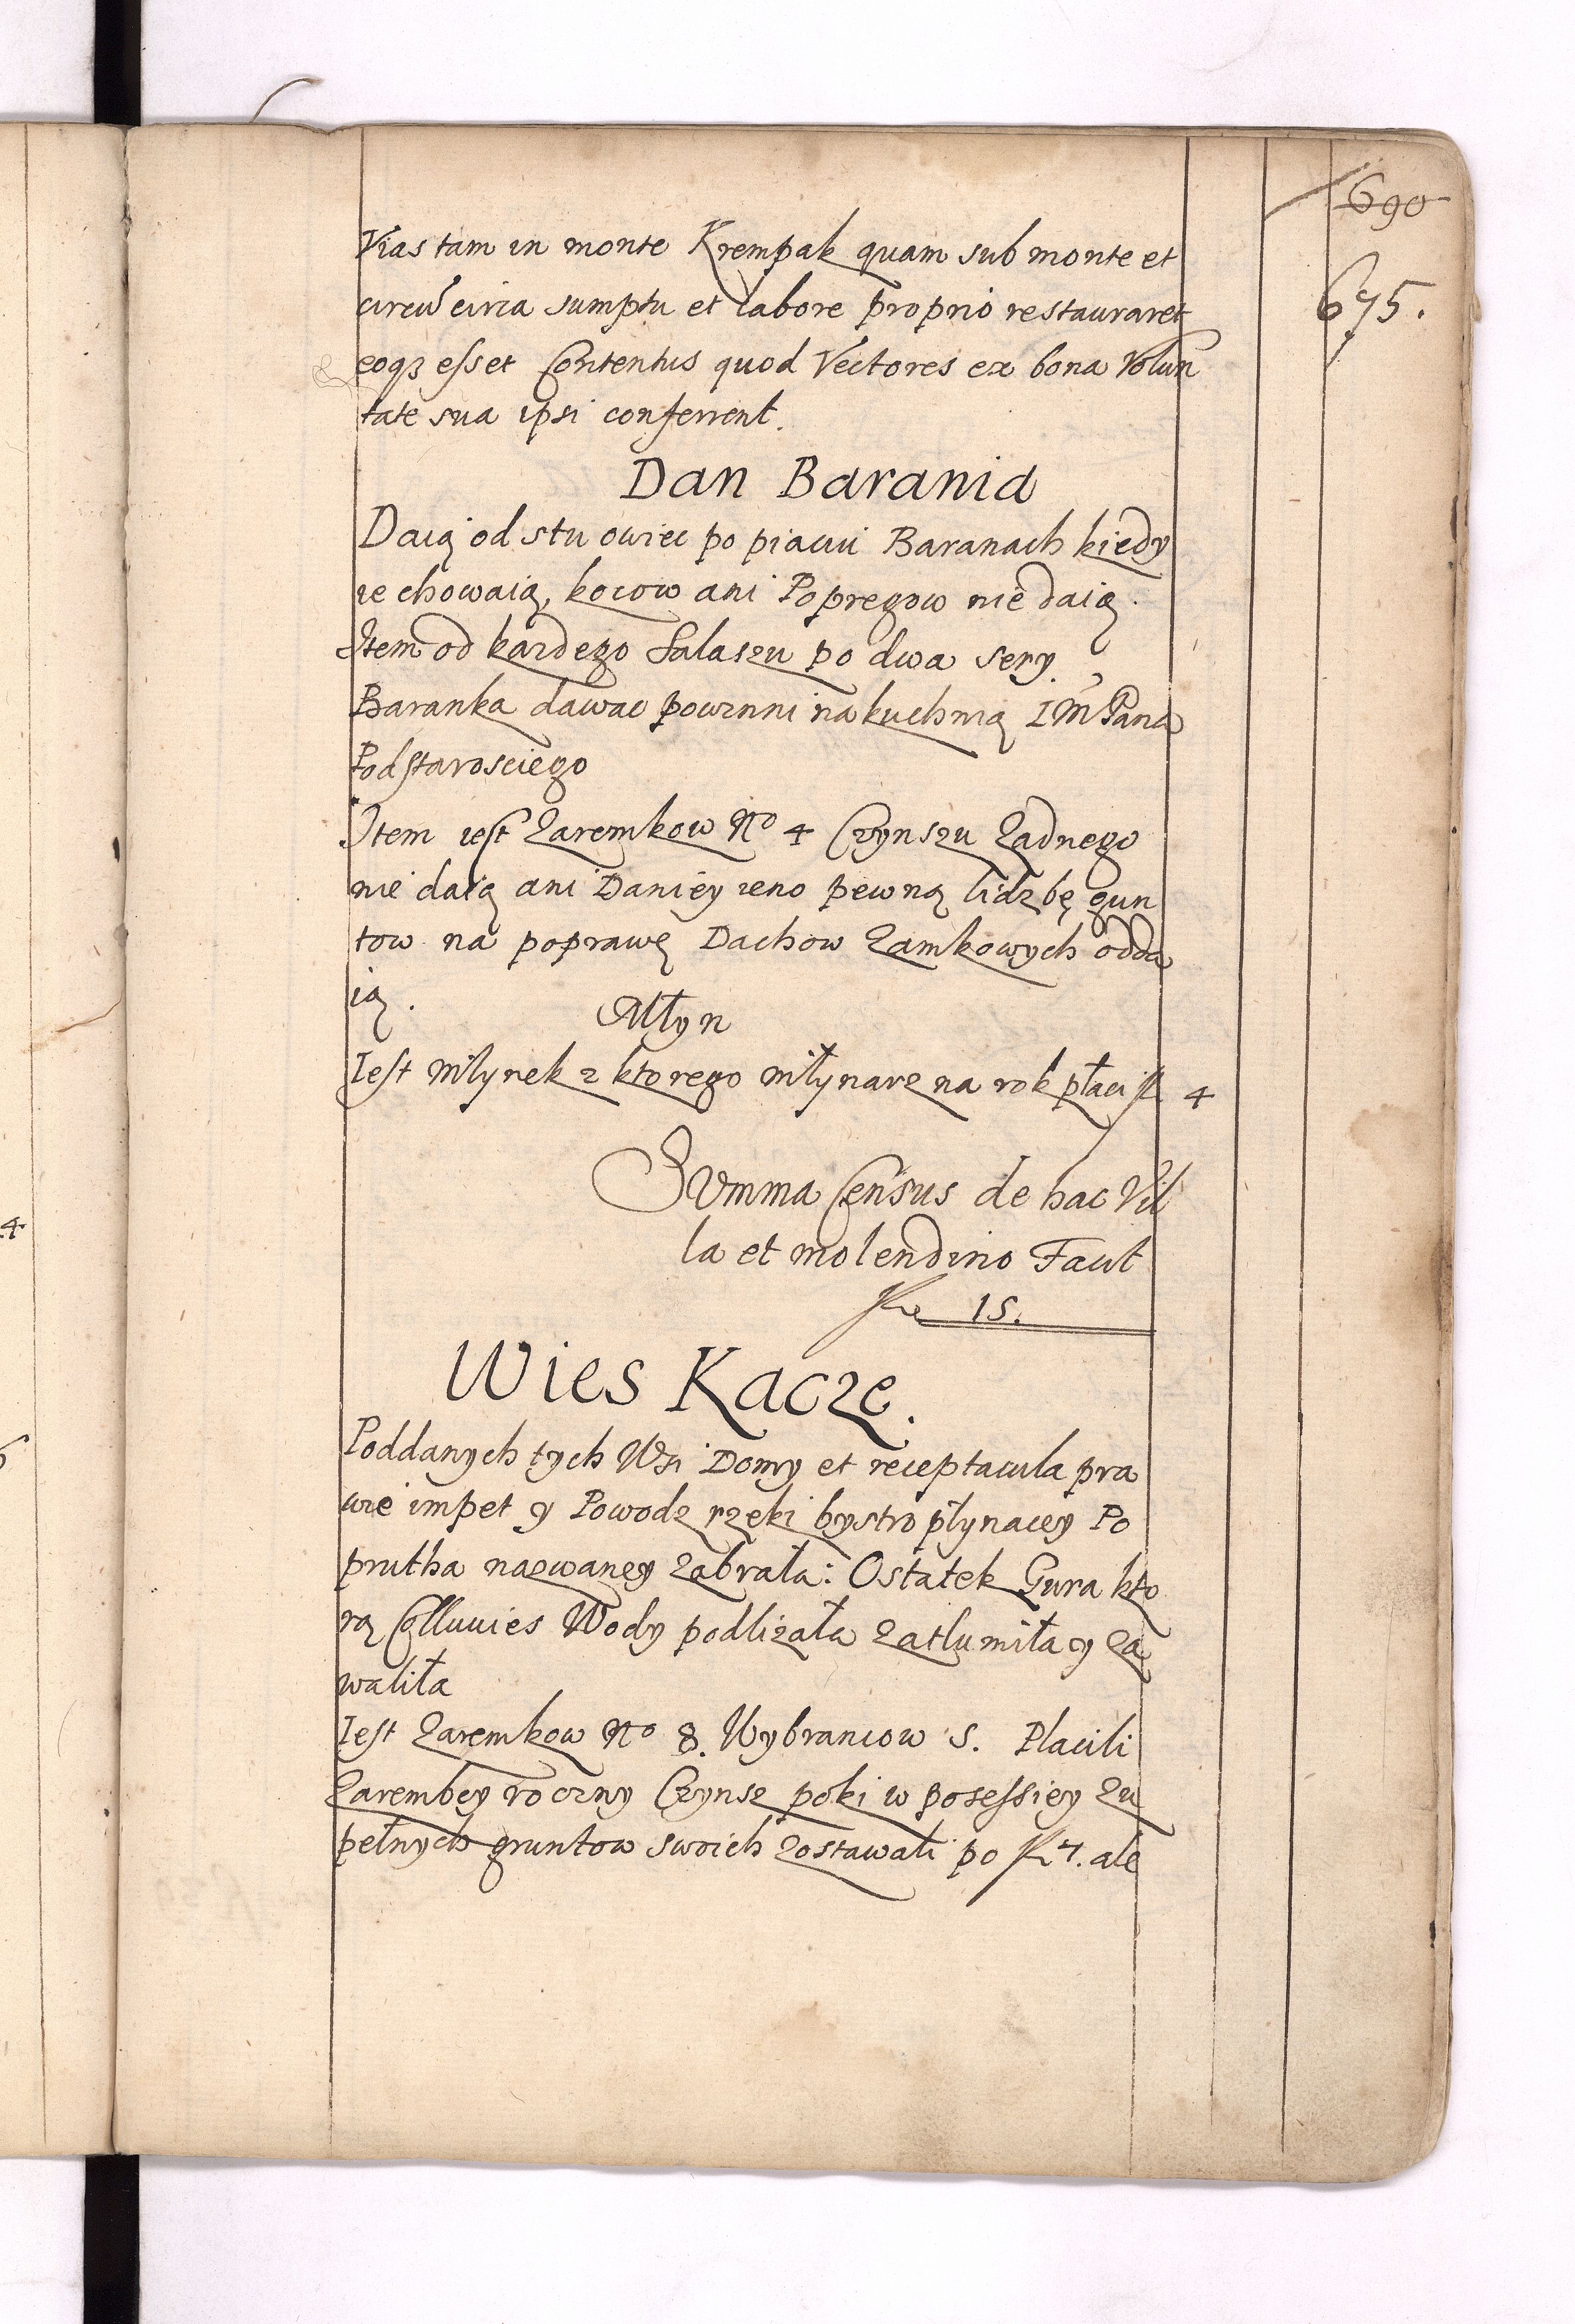 690
675.
Vias tam in monte Krempak quam sub monte et
circu circa sumptu et labore proprio restauraret
eoqꝫ esset Contentus quod Vectores ex bona Volun
tate sua ipsi conferrent.
Dan Barania
Daią od stu owiec po piaciu Baranach kiedy
ie chowaią, kocow ani Popregow nie daią.
Item od kazdego Salaszu po dwa sery.
Baranka dawac powinni na kuchnią IM Pana
Podstarosciego
Item iest Zaremkow No 4 Czynszu Zadnego
nie daią ani Daniey ieno pewną lidzbę gun
tow na poprawę Dachow Zamkowych odda
ią.
Młyn
Iest Młynek z ktorego młynarz na rok płaci fl 4
Summa Census de hac Vil
la et molendino Facit
fl 15.
Wies Kacze.
Poddanych tych Wsi Domy et receptacula pra
wie impet y Powodz rzeki bystro płynacey Po
prutha nazwaney zabrała: Ostatek Gura kto
rą Colluuies Wody podlizała zatlumiła y za
waliła
Iest Zaremkow No 8. Wybrancow 5. Placili
Zarembey roczny Czynsz poki w posessiey zu
pełnych gruntow swoich zostawali po fl 4. ale
4